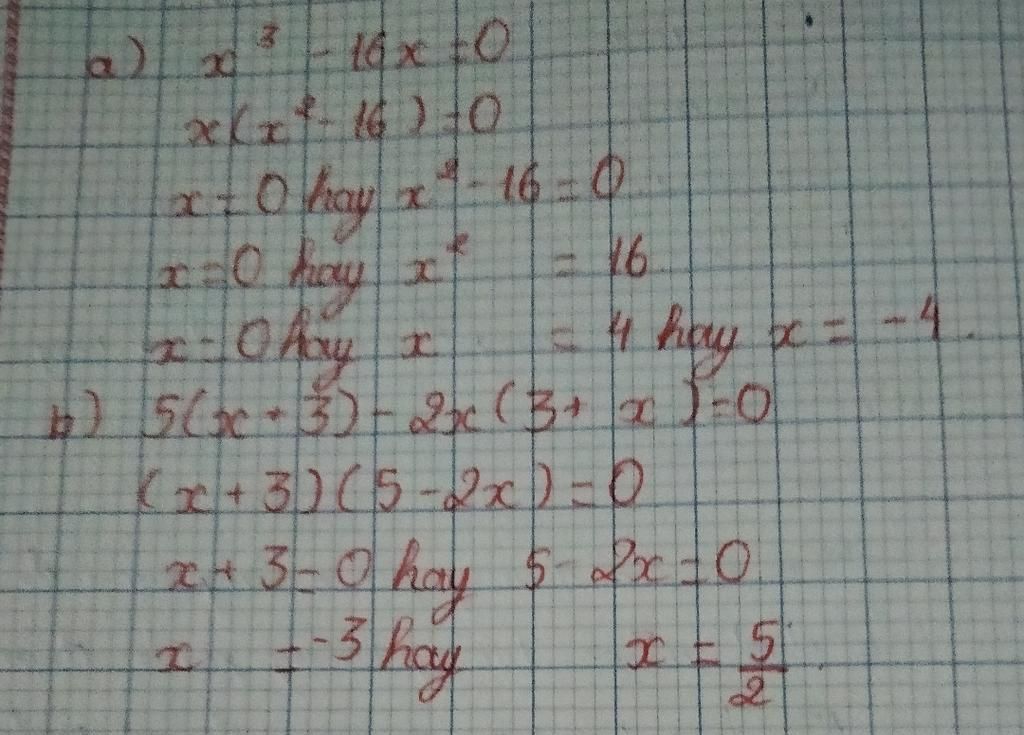 a) x³ - 16x = 0
x(x² - 16) = 0
x = 0 hay x² - 16 = 0
x = 0 hay x² = 16
x = 0 hay x = 4 hay x = -4.
b) 5(x + 3) - 2x(3 + x) = 0
(x + 3)(5 - 2x) = 0
x + 3 = 0 hay 5 - 2x = 0
x = -3 hay x = 5/2.